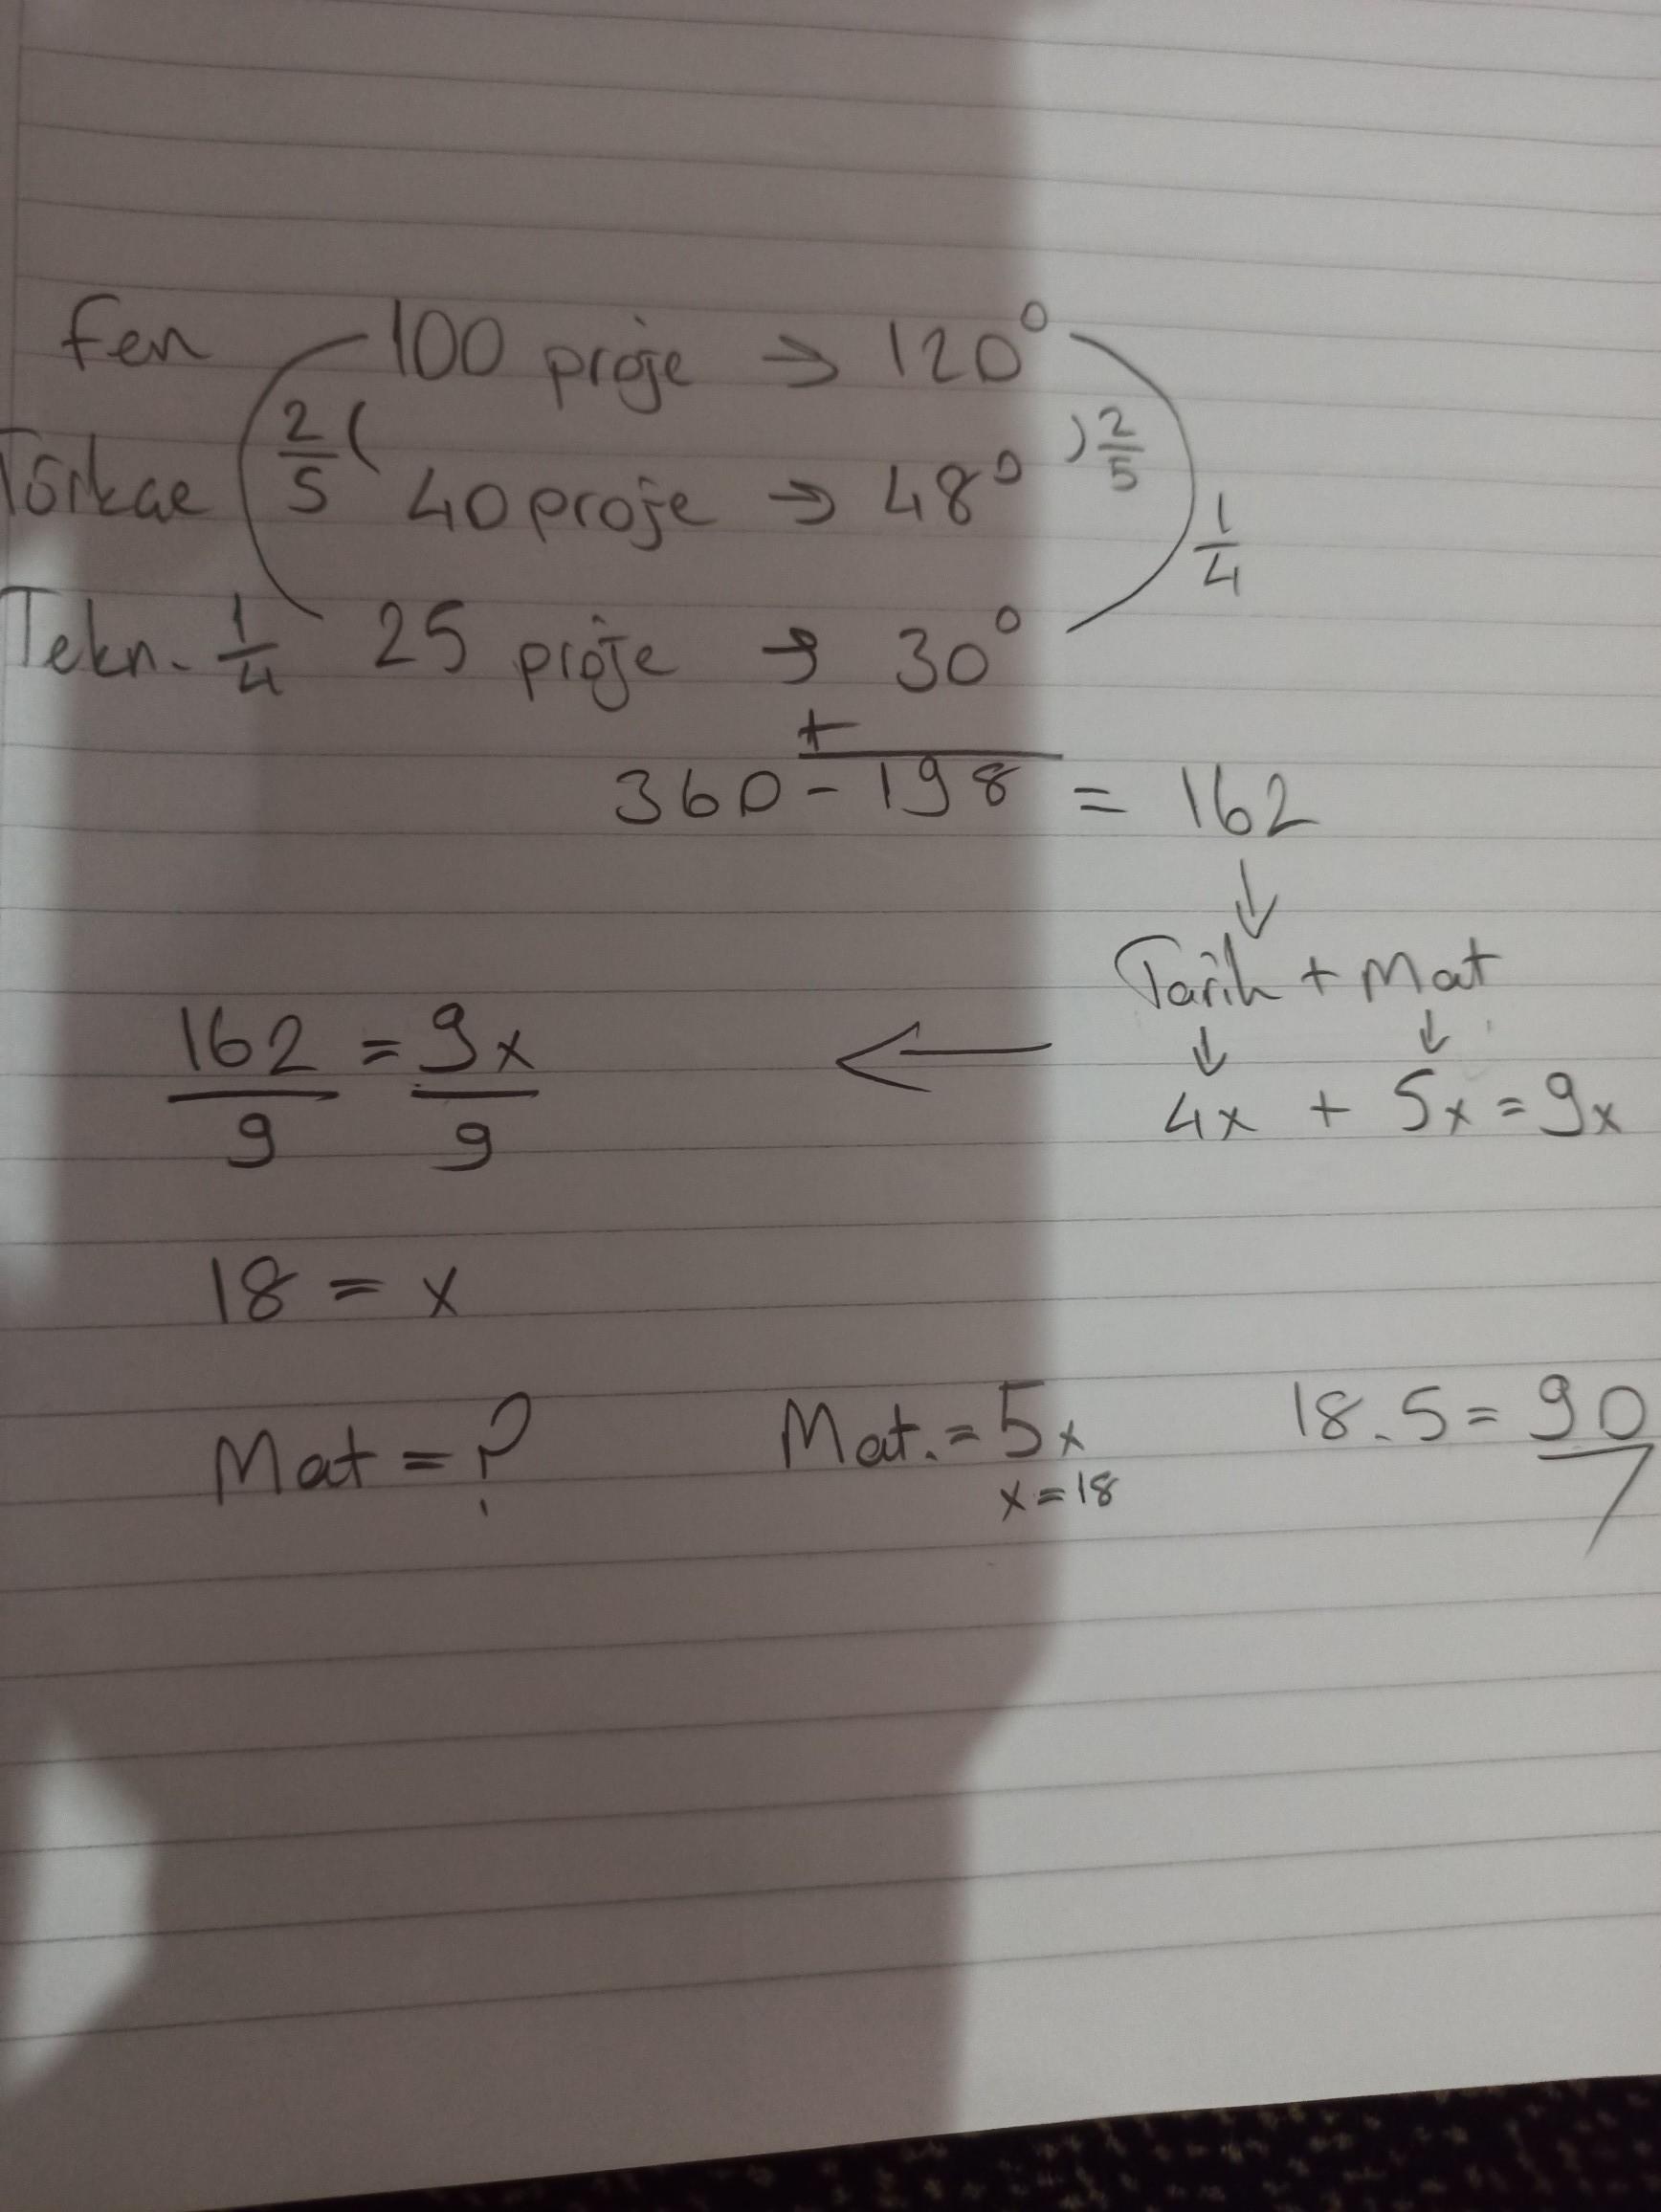 Fen 100 proje → 120°
Türkçe 2/5 ( 40 proje → 48° ) 2/5
1/4
Tekn. 1/4 25 proje → 30°
+
360 - 198 = 162
↓
Tarih + Mat
↓ ↓
162/9 = 9x/9 ← 4x + 5x = 9x
18 = x
Mat = ? Mat. = 5x 18.5 = 90
x = 18